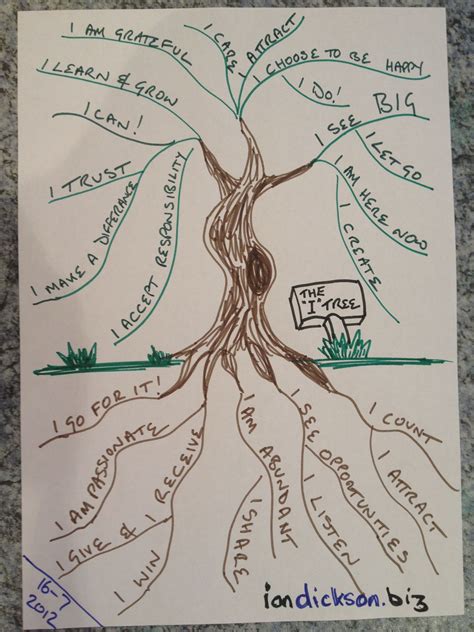 I AM GRATEFUL
I CARE
I ATTRACT
I CHOOSE TO BE HAPPY
I LEARN & GROW
I DO!
I CAN!
I SEE BIG
I LET GO
I TRUST
I AM HERE NOW
I MAKE A DIFFERANCE
I ACCEPT RESPONSIBILITY
I CREATE
THE
"I" TREE
I GO FOR IT!
I AM PASSIONATE
I GIVE & I RECEIVE
I WIN
I AM ABUNDANT
I SHARE
I SEE OPPORTUNITIES
I LISTEN
I COUNT
I ATTRACT
16-7
2012
iandickson.biz